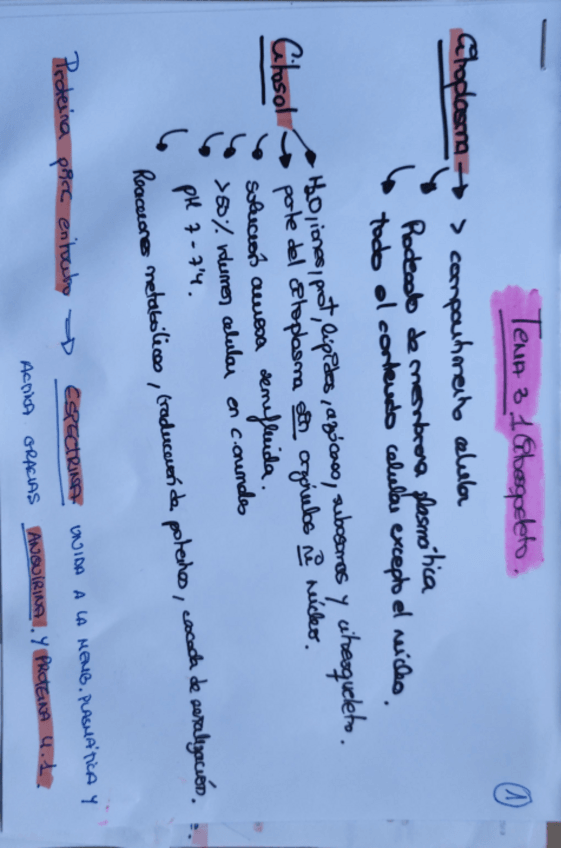 TEMA 3.1 Citoesqueleto.
1
Citoplasma → > compartimento celular
Rodeado de membrana plasmática
todo el contenido celular excepto el núcleo.
Citosol → H₂O, iones, prot, lípidos, azúcares, ribosomas y citoesqueleto.
parte del citoplasma sin orgánulos ni núcleo.
solución acuosa semifluida.
>50% volumen celular en c. animales
pH 7-7'4.
Reacciones metabólicas, traducción de proteínas, cascada de señalización.
Proteína eritrocito → ESPECTRINA UNIDA A LA MEMB. PLASMÁTICA Y
ACTINA GRACIAS ANQUIRINA. Y PROTEINA 4.1.